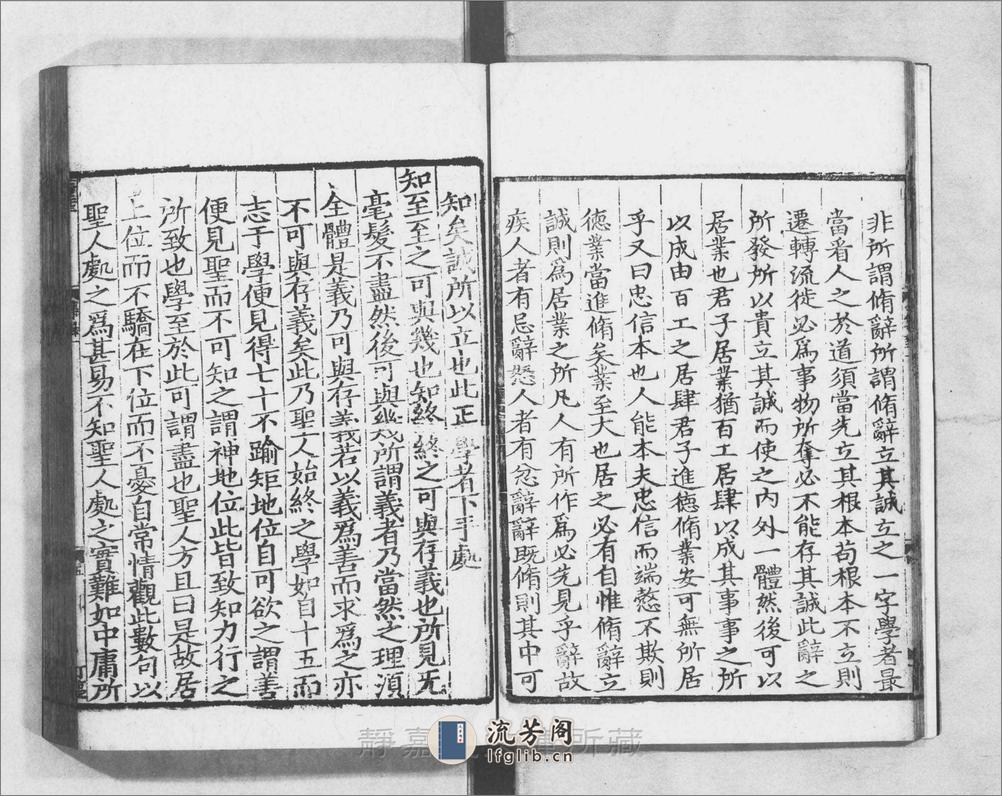 非所謂脩辭所謂脩辭立其誠立之一字學者最
當看人之於道須當先立其根本苟根本不立則
遷轉流徙必爲事物所奪必不能存其誠此辭之
所發所以貴立其誠而使之内外一體然後可以
居業也君子居業猶百工居肆以成其事事之所
以成由百工之居肆君子進德脩業安可無所居
乎又曰忠信本也人能本夫忠信而端慤不欺則
德業當進脩矣業至大也居之必有自惟脩辭立
誠則爲居業之所凡人有所作爲必先見乎辭故
疾人者有忌辭怒人者有忿辭辭既脩則其中可
知矣誠所以立也此正學者下手處
知至至之可與幾也知終終之可與存義也所見旡
毫髮不盡然後可與幾所謂義者乃當然之理須
全體是義乃可與存義若以義爲善而求爲之亦
不可與存義矣此乃聖人始終之學如自十五而
志于學便見得七十不踰矩地位自可欲之謂善
便見聖而不可知之謂神地位此皆致知力行之
所致也學至於此可謂盡也聖人方且曰是故居
上位而不驕在下位而不憂自常情觀此數句以
聖人處之爲甚易不知聖人處之實難如中庸所
流芳阁
lfglib.cn
靜嘉 所藏